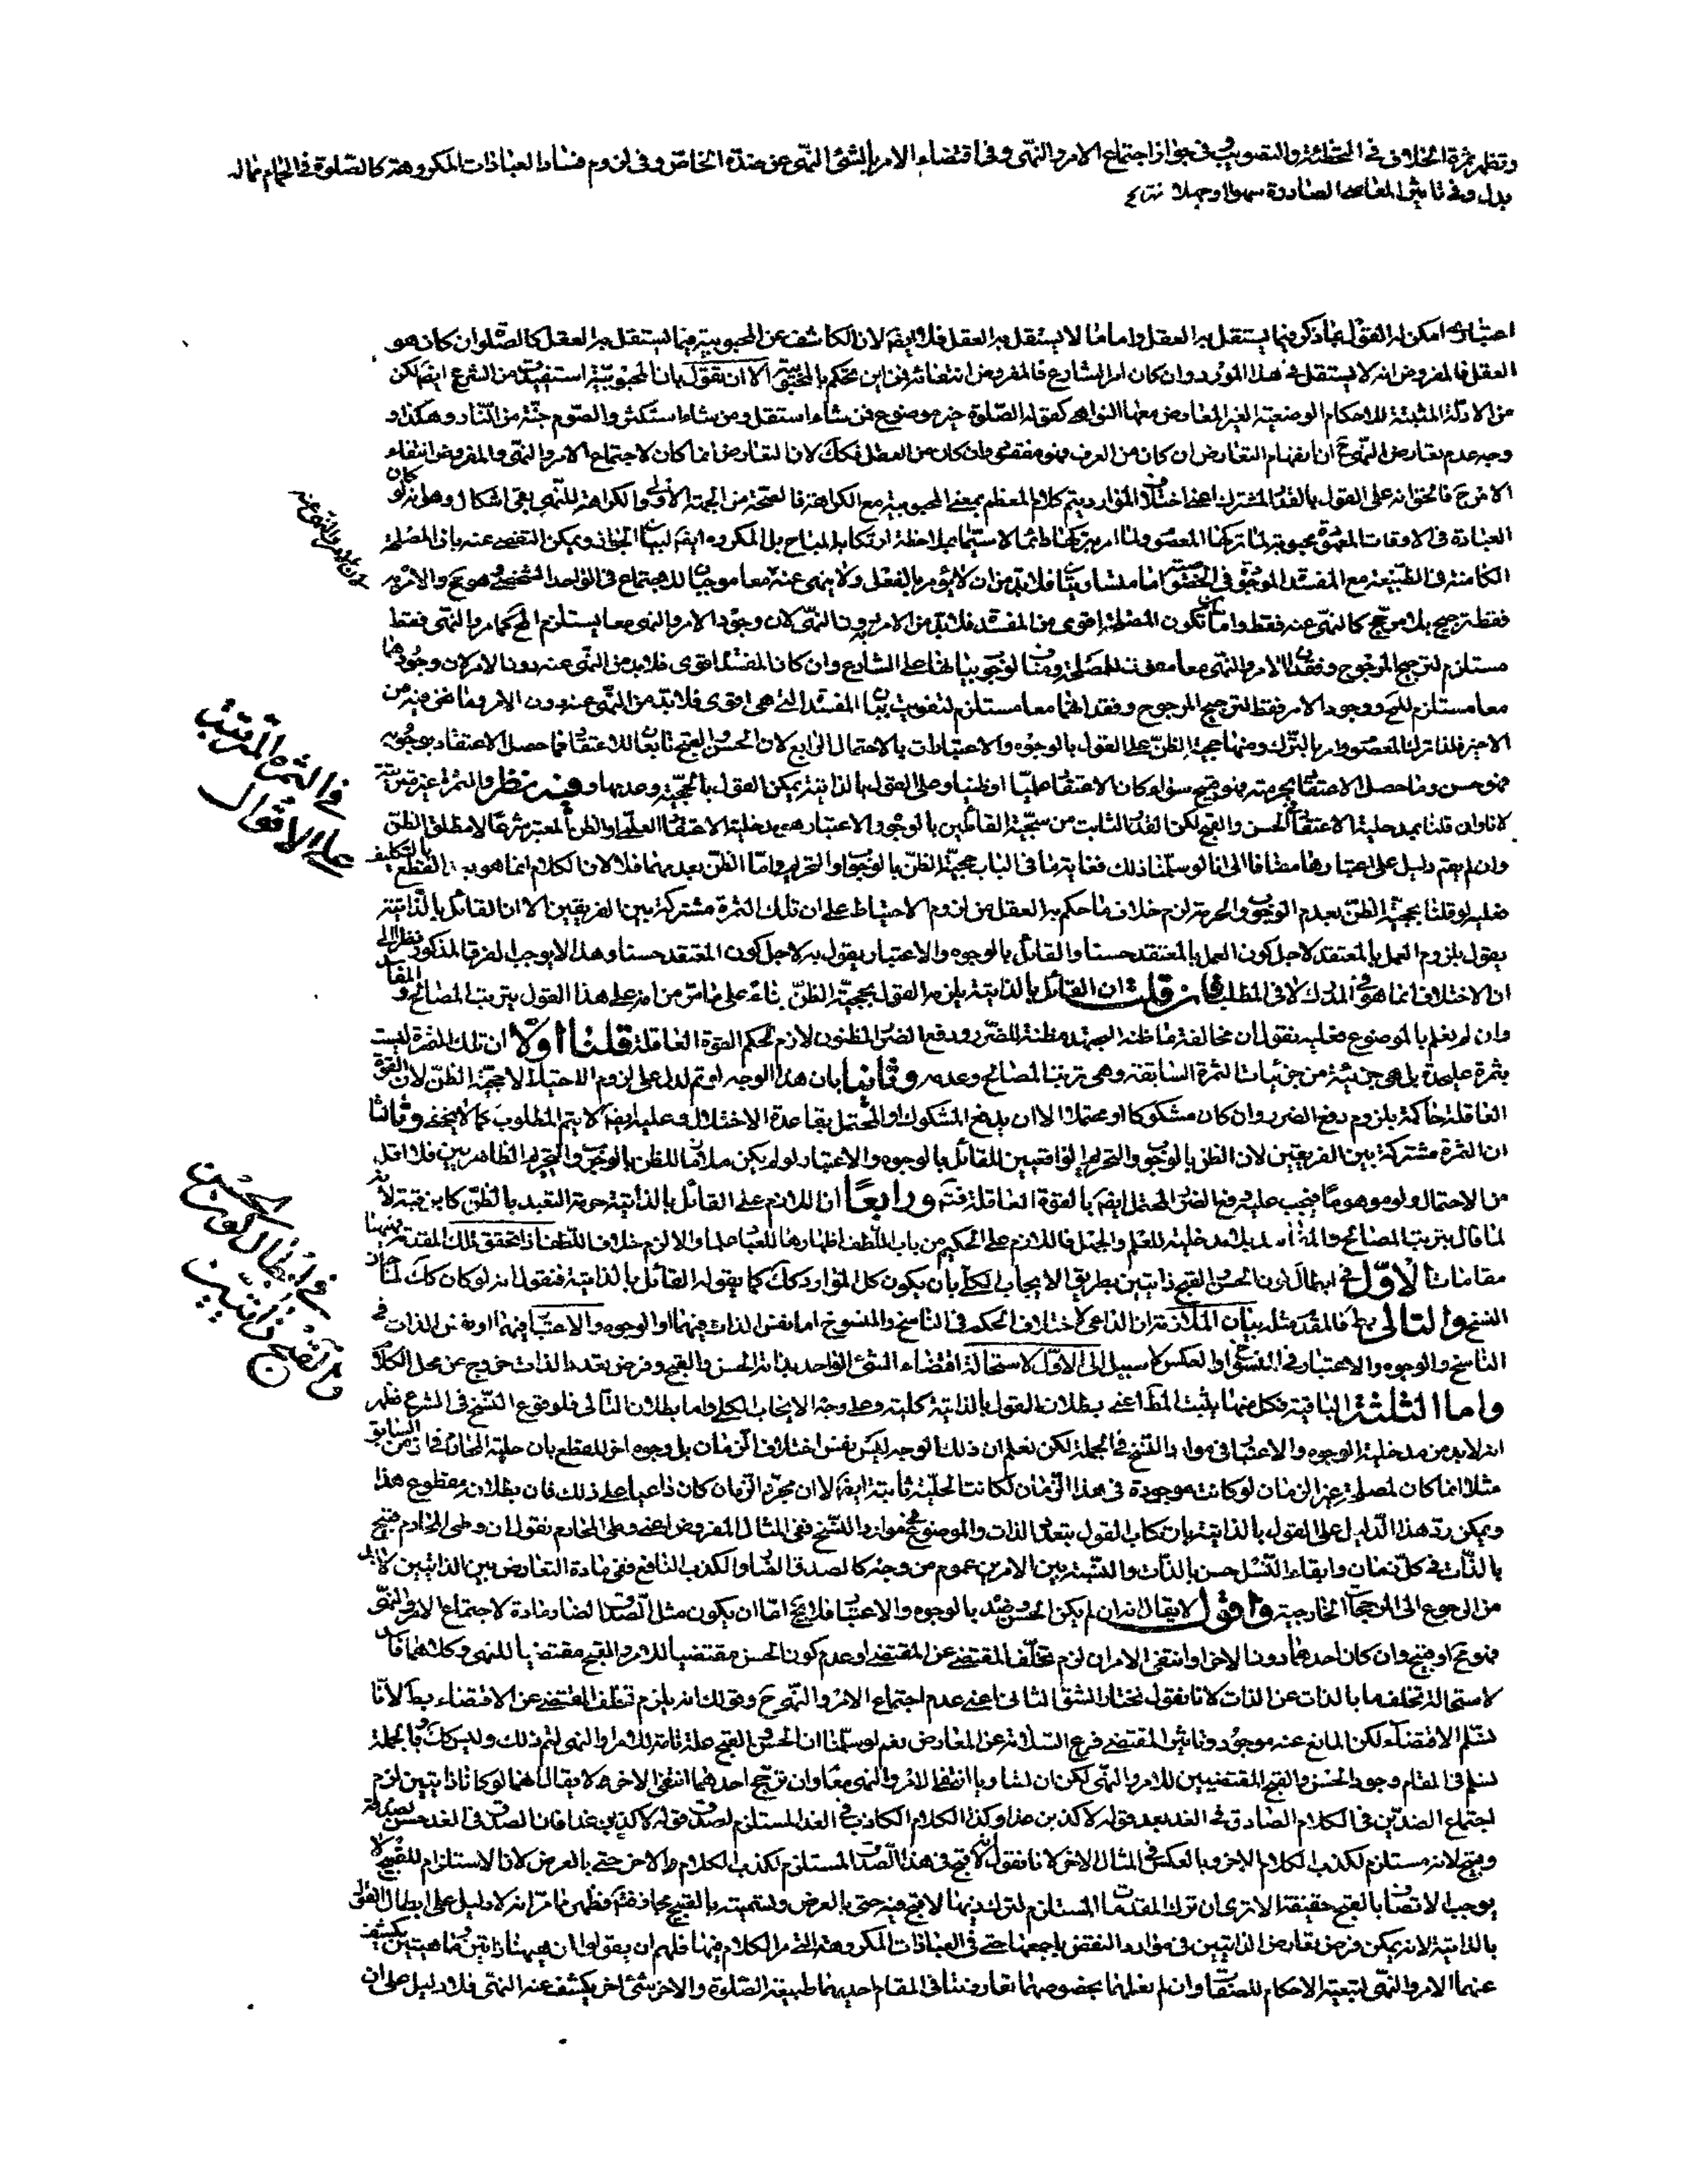 وتظهر ثمرة الخلاف في التخطئة والتصويب في جواز اجتماع الامر والنهى وفى اقتضاء الامر بالشئ النهى عن ضده الخاص وفى لزوم فساد العبادات المكروهة كالصلوة في الحمام مما له
بدل وفى تاثير المفاسد الصادرة سهوا او جهلا
امكن له القول بما ذكر فيما يستقل به العقل واما ما لا يستقل به العقل فلا ايضا لان الكاشف عن المحبوبية فيما يستقل به العقل كالصلو ان كان هو
العقل فالمفروض انه لا يستقل في هذا المورد وان كان امر الشارع فالمفروض انتفائه فمن اين يحكم بالمحبوبية الا ان نقول بان المحبوبية استفيدت من الشرع ايضا لكن
من الادلة المثبتة للاحكام الوضعية الغير المعارض معها النواهى كقوله الصلوة خير موضوع فمن شاء استقل ومن شاء استكثر والصوم جنة من النار وهكذا و
وجه عدم تعارض النهى ح ان افهام التعارض ان كان من العرف فهو مفقود وان كان من العقل فكك لان التعارض انما كان لاجتماع الامر والنهى والمفروض انتفاء
الامر ح فالحق انه على القول بالقدر المشترك اعنى اختلاف الموارد يتم كلام المعظم بمعنى المحبوبية مع الكراهة فالصحة من الجهة الاولى والكراهة للنهى بقى اشكال وهو انه لو كان
العبادة في الاوقات محبوبة لما تركها المعصوم ولما امر بتركها دائما لا سيما بملاحظة ارتكابه المباح بل المكروه ايضا لبيان الجواز ويمكن التفصى عنه بان المصلحة
الكامنة في الطبيعة مع المفسدة الموجودة في الخصوصية اما متساويتان فلا بد من ان لا يؤمر بالفعل ولا ينهى عنه معا موجبان للاجتماع في الواحد الشخصى وهو قبيح والامر به
فقط ترجيح بلا مرجح كالنهى عنه فقط واما ان تكون المصلحة اقوى من المفسدة فلا بد من الامر دون النهى لان وجود الامر والنهى معا يستلزم القبح كما مر والنهى فقط
مستلزم لترجيح المرجوح وفقد الامر والنهى معا مفوت للمصلحة ومناف لوجوب بيانها على الشارع وان كان المفسدة اقوى فلا بد من النهى عنه دون الامر لان وجودهما
معا مستلزم للقبح ووجود الامر فقط لترجيح المرجوح وفقدانهما معا مستلزم لتفويت بيان المفسدة التى هى اقوى فلا بد من النهى عنه دون الامر وما نحن فيه من
الاخير فلذا ترك المعصوم وامر بالترك ومنها حجية الظن على القول بالوجوه والاعتبارات بالاحتمال الرابع لان الحسن والقبح تابعان للاعتقاد فما حصل الاعتقاد بوجوبه
فهو حسن وما حصل الاعتقاد بحرمته فهو قبيح سواء كان الاعتقاد علميا او ظنيا وعلى القول بالذاتية يمكن القول بالحجية وعدمها وفيه نظر والثمرة غير مترتبة
لانا وان قلنا بمدخلية الاعتقاد في الحسن والقبح لكن القدر الثابت من سجية القائلين بالوجوه والاعتبار هو مدخلية الاعتقاد العلمى او الظن المعتبر شرعا لا مطلق الظن
وان لم يقم دليل على اعتبارها مضافا الى انا لو سلمنا ذلك فغاية ما في الباب حجية الظن بالوجوب او التحريم واما الظن بعدمهما فلا لان الكلام انما هو بعد القطع بالتكليف
فعليه لو قلنا بحجية الظن بعدم الوجوب والحرمة لزم خلاف ما حكم به العقل من لزوم الاحتياط على ان تلك الثمرة مشتركة بين الفريقين الا ان القائل بالذاتية
يقول بلزوم العمل بالمعتقد لاجل كون العمل بالمعتقد حسنا والقائل بالوجوه والاعتبار يقول به لاجل كون المعتقد حسنا وهذا لا يوجب الفرق المذكور نظرا الى
ان الاختلاف انما هو في المدرك لا في المطلب فان قلت ان القائل بالذاتية يلزمه القول بحجية الظن بناء على ما مر من امر على هذا القول بترتب المصالح والمفاسد
وان لم يعلم بالموضوع فعليه نقول ان مخالفة ما ظنه المجتهد مظنة للضرر ودفع الضرر المظنون لازم لحكم القوة العاقلة قلنا اولا ان تلك الثمرة ليست
بثمرة عليحدة بل هى جزئية من جزئيات الثمرة السابقة وهى ترتب المصالح وعدمه وثانيا بان هذا الوجه لو تم لدل على لزوم الاحتياط لا حجية الظن لان القوة
العاقلة حاكمة بلزوم دفع الضرر وان كان مشكوكا او محتملا الا ان يدفع المشكوك والمحتمل بقاعدة الاختلال وعليه ايضا لا يتم المطلوب كما لا يخفى وثالثا
ان الثمرة مشتركة بين الفريقين لان الظن بالوجوب والتحريم الواقعيين للقائل بالوجوه والاعتبار لو لم يكن ملازما للظن بالوجوب والتحريم الظاهريين فلا اقل
من الاحتمال ولو موهوما فيجب عليه دفع الضرر المحتمل ايضا بالقوة العاقلة فتم ورابعا ان اللازم على القائل بالذاتية حرمة التعبد بالظن كابن قبة لانه
لما قال بترتب المصالح والمفاسد بلا مدخلية للعلم والجهل فاللازم على الحكيم من باب اللطف اظهارها للعباد علما والا لزم خلاف اللطف اذا تحقق تلك المقدمة فيهنا
مقامات الاول في ابطال كون الحسن والقبح ذاتيين بطريق الايجاب الكلى بان يكون كل الموارد كك كما يقوله القائل بالذاتية فنقول انه لو كان كك لما جاز
النسخ والتالى بط فالمقدم مثله بيان الملازمة ان الداعى لاختلاف الحكم في الناسخ والمنسوخ اما نفس الذات فيهما او الوجوه والاعتبار فيهما او نفس الذات في
الناسخ والوجوه والاعتبار في المنسوخ او العكس لا سبيل الى الاول لاستحالة اقتضاء الشئ الواحد بذاته الحسن والقبح وفرض تعدد الذات خروج عن محل الكلام
واما الثلثة الباقية فكل منها يثبت المط اعنى بطلان القول بالذاتية كلية وعلى وجه الايجاب الكلى واما بطلان التالى فلوقوع النسخ في الشرع فظهر
انه لابد من مدخلية الوجوه والاعتبار في موارد النسخ في الجملة لكن نعلم ان ذلك الوجه ليس نفس اختلاف الزمان بل وجوه اخر للقطع بان حلية المحارم في زمن السابق
مثلا انما كان لمصلحة غير الزمان لو كانت موجودة في هذا الزمان لكانت الحلية ثابتة ايضا لا ان مجرد الزمان كان داعيا على ذلك فان بطلانه مقطوع هذا
ويمكن رد هذا الدليل على القول بالذاتية بارتكاب القول بتعدد الذات والموضوع في موارد النسخ ففى المثال المفروض اعنى وطى المحارم نقول ان وطى المحارم قبيح
بالذات في كل زمان وابقاء النسل حسن بالذات والنسبة بين الامرين عموم من وجه كالصدق الضار والكذب النافع ففى مادة التعارض بين الذاتيين لابد
من الرجوع الى المرجحات الخارجية واقول لا يقال انه ان لم يكن الحسن وضده بالوجوه والاعتبار فلا يخ اما ان يكون مثل الصدق الضار مادة لاجتماع الامر والنهى
فهو قبيح وان كان احدهما دون الاخر او انتفى الامران لزم تخلف المقتضى عن المقتضى وعدم كون الحسن مقتضيا للامر والقبح مقتضيا للنهى وكلاهما فاسد
لاستحالة تخلف ما بالذات عن الذات لانا نقول نختار الشق الثانى اعنى عدم اجتماع الامر والنهى ح وقولك انه يلزم تخلف المقتضى عن الاقتضاء بط لانا
نسلم الاقتضاء لكن المانع عنه موجود وتاثير المقتضى فرع السلامة عن المعارض نعم لو سلمنا ان الحسن والقبح علة تامة للامر والنهى لتم ذلك وليس كك وبالجملة
نسلم في المقام وجود الحسن والقبح المقتضيين للامر والنهى لكن ان تساويا انتفى الامر والنهى معا وان ترجح احدهما انتفى الاخر لا يقال انهما لو كانا ذاتيين لزم
اجتماع الضدين في الكلام الصادق في الغد بعد قوله لاكذبن غدا وكذا الكلام الكاذب في الغد المستلزم لصدق قوله لاكذبن غدا فان الصدق في الغد حسن لصدقه
وقبيح لانه مستلزم لكذب الكلام الاخر وبالعكس في المثال الاخر لانا نقول انه لا قبح في هذا الصدق المستلزم لكذب الكلام الاخر حتى بالعرض لان الاستلزام للقبيح لا
يوجب الاتصاف بالقبح حقيقة الا ترى ان ترك المقدمات المستلزم لترك ذيها لا قبح فيه حتى بالعرض وتسميته بالقبيح مجاز فتم فظهر مما مر انه لا دليل على ابطال القول
بالذاتية لانه يمكن فرض تعارض الذاتيين في موارد النقض باجمعها حتى في العبادات المكروهة التى مر الكلام فيها فلهم ان يقولوا ان هيهنا ذاتيين وماهيتين يكشف
عنهما الامر والنهى لتبعية الاحكام للصفات وان لم نعلمها بخصوصهما تعارضتا في المقام احديهما طبيعة الصلوة والاخر شئ اخر يكشف عنه النهى فلا دليل على ان
في الثمرة المترتبة
على الاقوال
في ابطال كون الحسن
والقبح ذاتيين